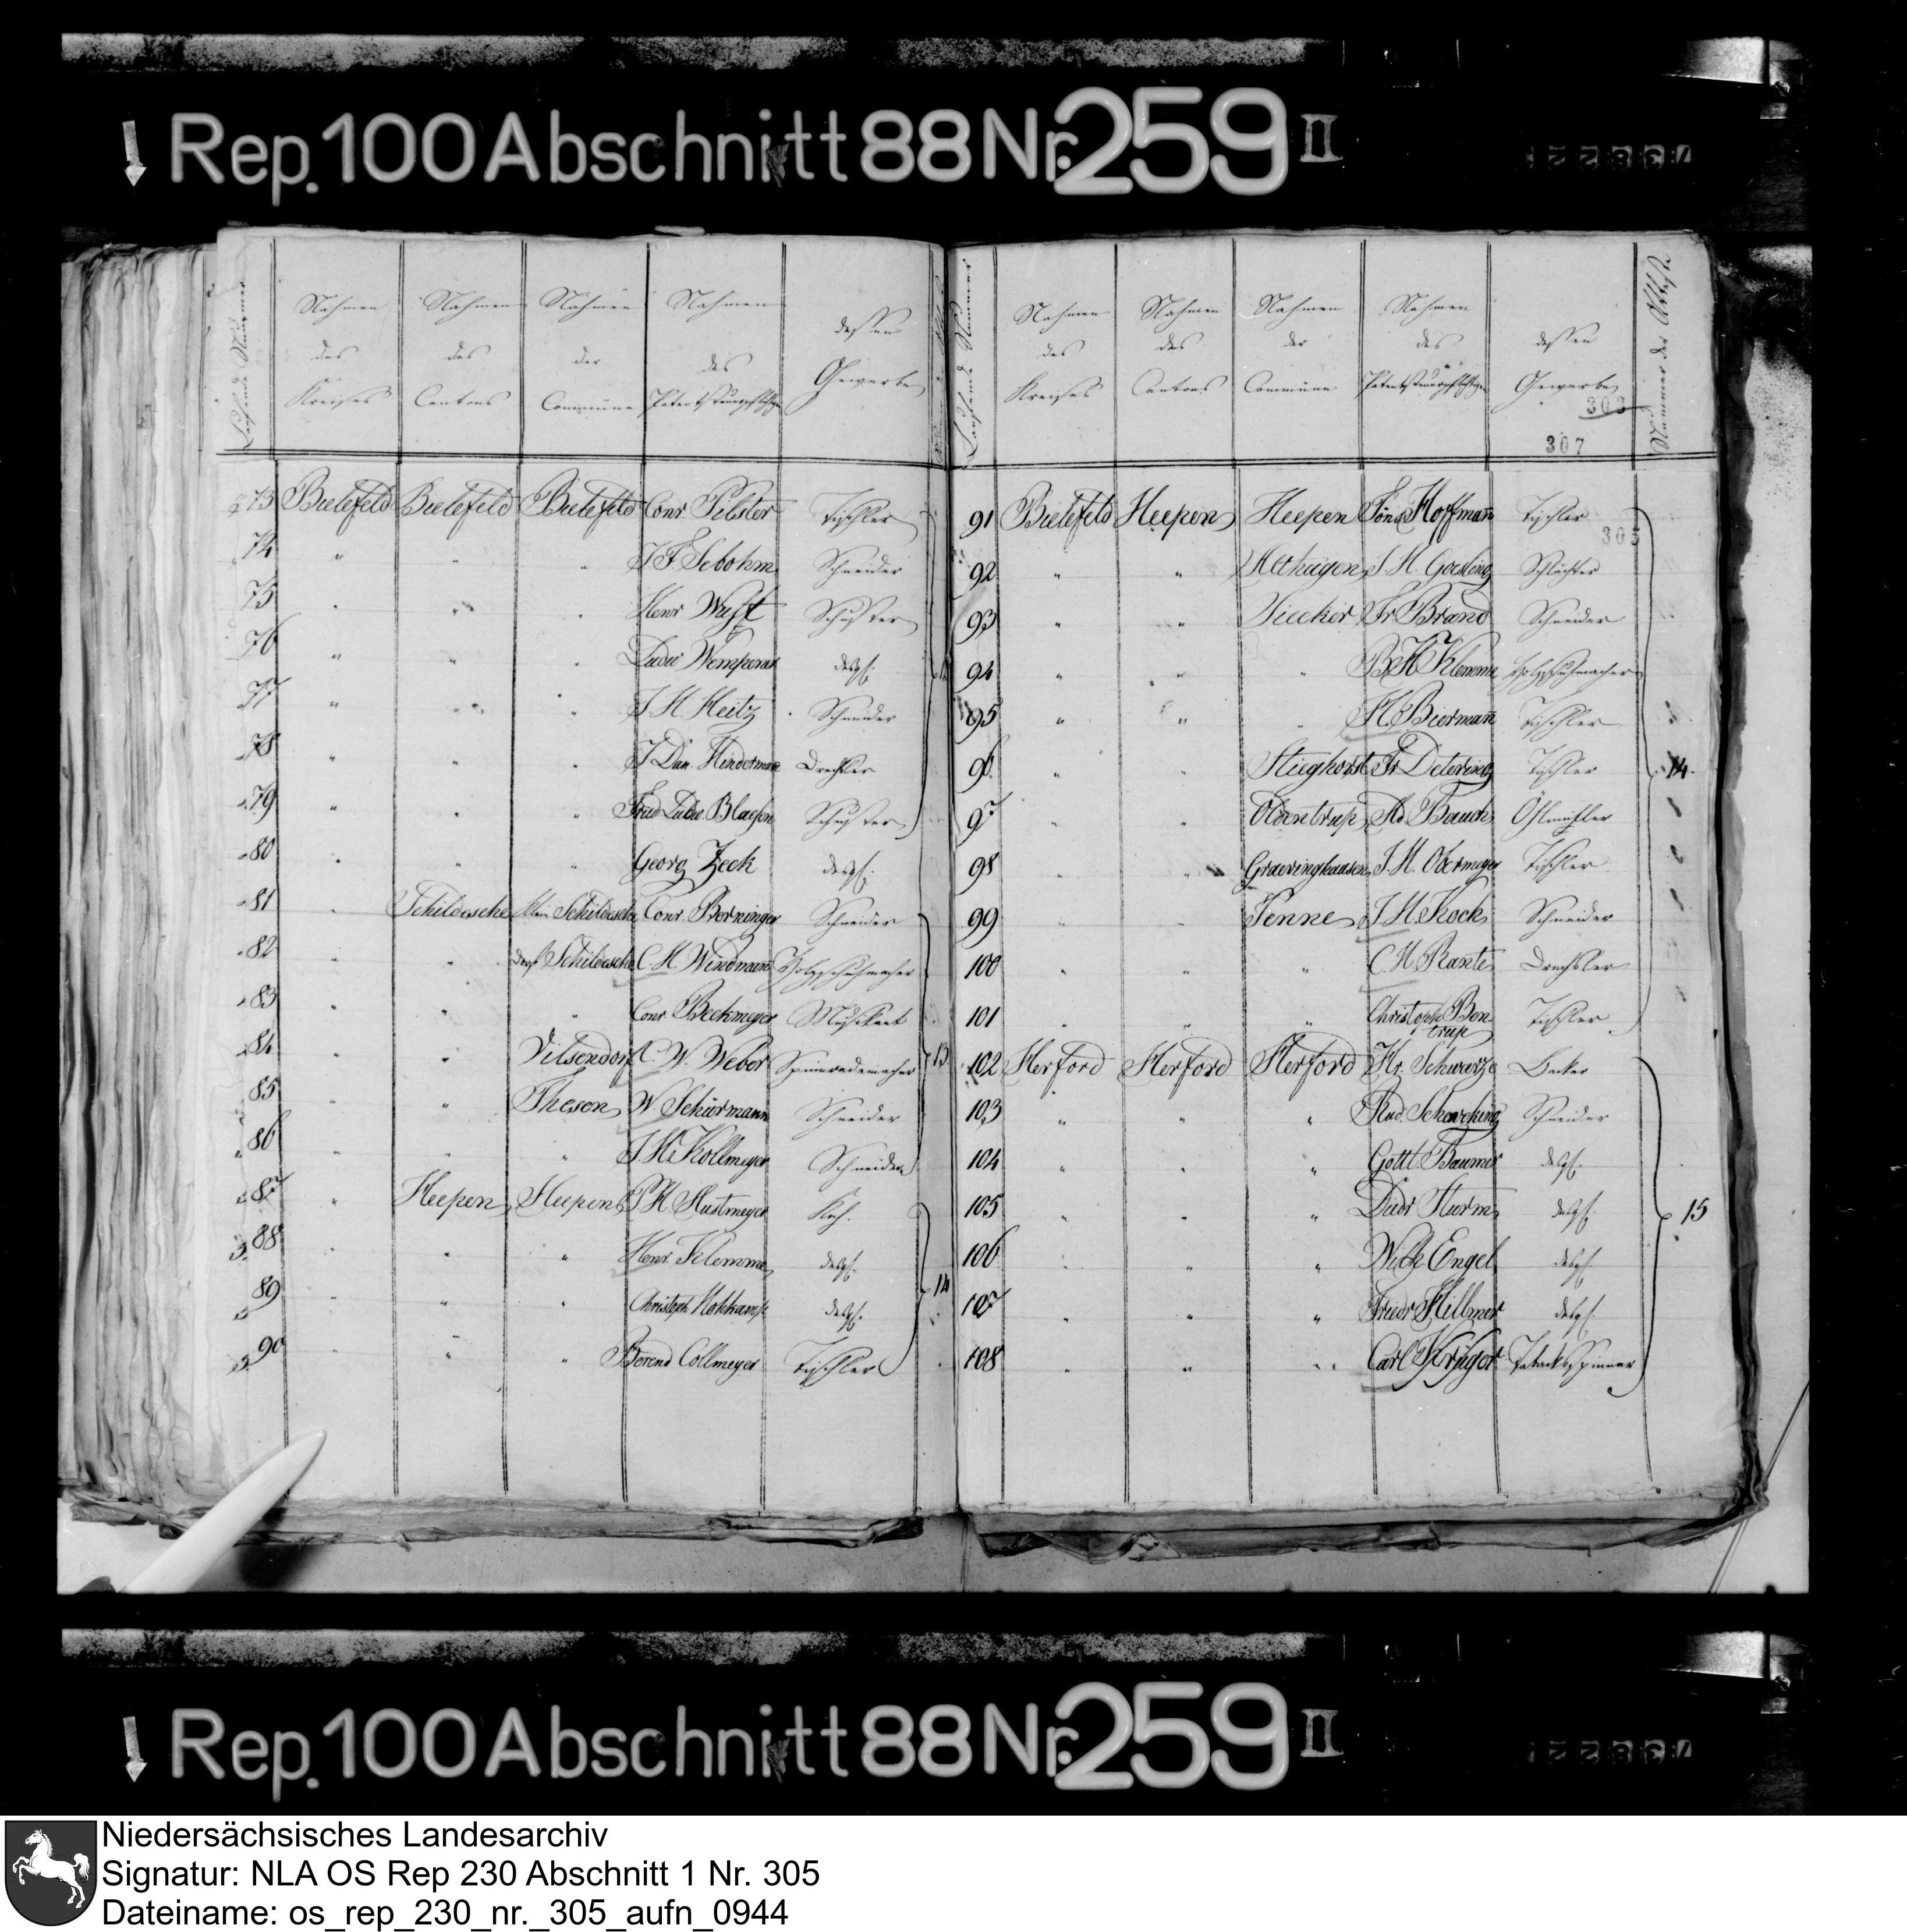 Rep. 100 Abschnitt 88 Nr. 259 II
Laufende Nummer Nahmen des Kreises Nahmen des Cantons Nahmen der Commüne Nahmen des Patentsteuerpflichtigen dessen Gewerbe
73 Bielefeld Bielefeld Bielefeld Conr Pilster Tischler
74 " " " J F Sebohm Schneider
75 " " " Henr Schuster
76 " " " Ludw desgl.
77 " " " J H Heitz Schneider
78 " " " J Dan. Hinderman Drechsler
79 " " " Fried Ludw. Schuster
80 " " " Georg Zeck desgl.
81 " Schildesche Schildesche Conr. Berninger Schneider
82 " " Dorf Schildesche C. H. Windmann Holzschuhmacher
83 " " " Conr Beckmeyer Musikant
84 " " Vilsendorf C. W. Weber Spinnrademacher 13
85 " " Thesen W. Schürmann Schneider
86 " " " J. H. Kollmeyer Schneider
87 " Heepen Heepen P H. Hustmeyer
88 " " " Henr. Klemme desgl.
89 " " " Christoph desgl. 14
90 " " " Berend Collmeyer Tischler
Laufende Nummer Nahmen des Kreises Nahmen des Cantons Nahmen der Commüne Nahmen des Patentsteuerpflichtigen dessen Gewerbe Nummer der Atteste
303
307
91 Bielefeld Heepen Heepen Hoffmañ Tischler
305
92 " " Althagen J. H. Goesling Schlächter
93 " " Siecker Fr Brand Schneider
94 " " " B H Klemme Holzschuhmacher
95 " " " H Biermañ Tischler
96 " " Stieghorst Fr Detering Tischler 14.
97 " " Oldentrup Ad Bauch Öhlmüller
98 " " Graevinghausen J. H. Obermeyer Tischler
99 " " Senne J. H. Kock Schneider
100 " " " C. H. Rante Drechsler
101 " " " Christoph Bentrup Tischler
102 Herford Herford Herford Hr. Schwarze Becker
103 " " " Rud. Schneider
104 " " " Gottl. Baumer desgl.
105 " " " Diedr Sturm desgl. 15
106 " " " Wilh Engel desgl.
107 " " " Friedr Hillmer desgl.
108 " " " Carl Krüger Tabacksspinner
Rep. 100 Abschnitt 88 Nr. 259 II
Niedersächsisches Landesarchiv
Signatur: NLA OS Rep 230 Abschnitt 1 Nr. 305
Dateiname: os_rep_230_nr._305_aufn_0944